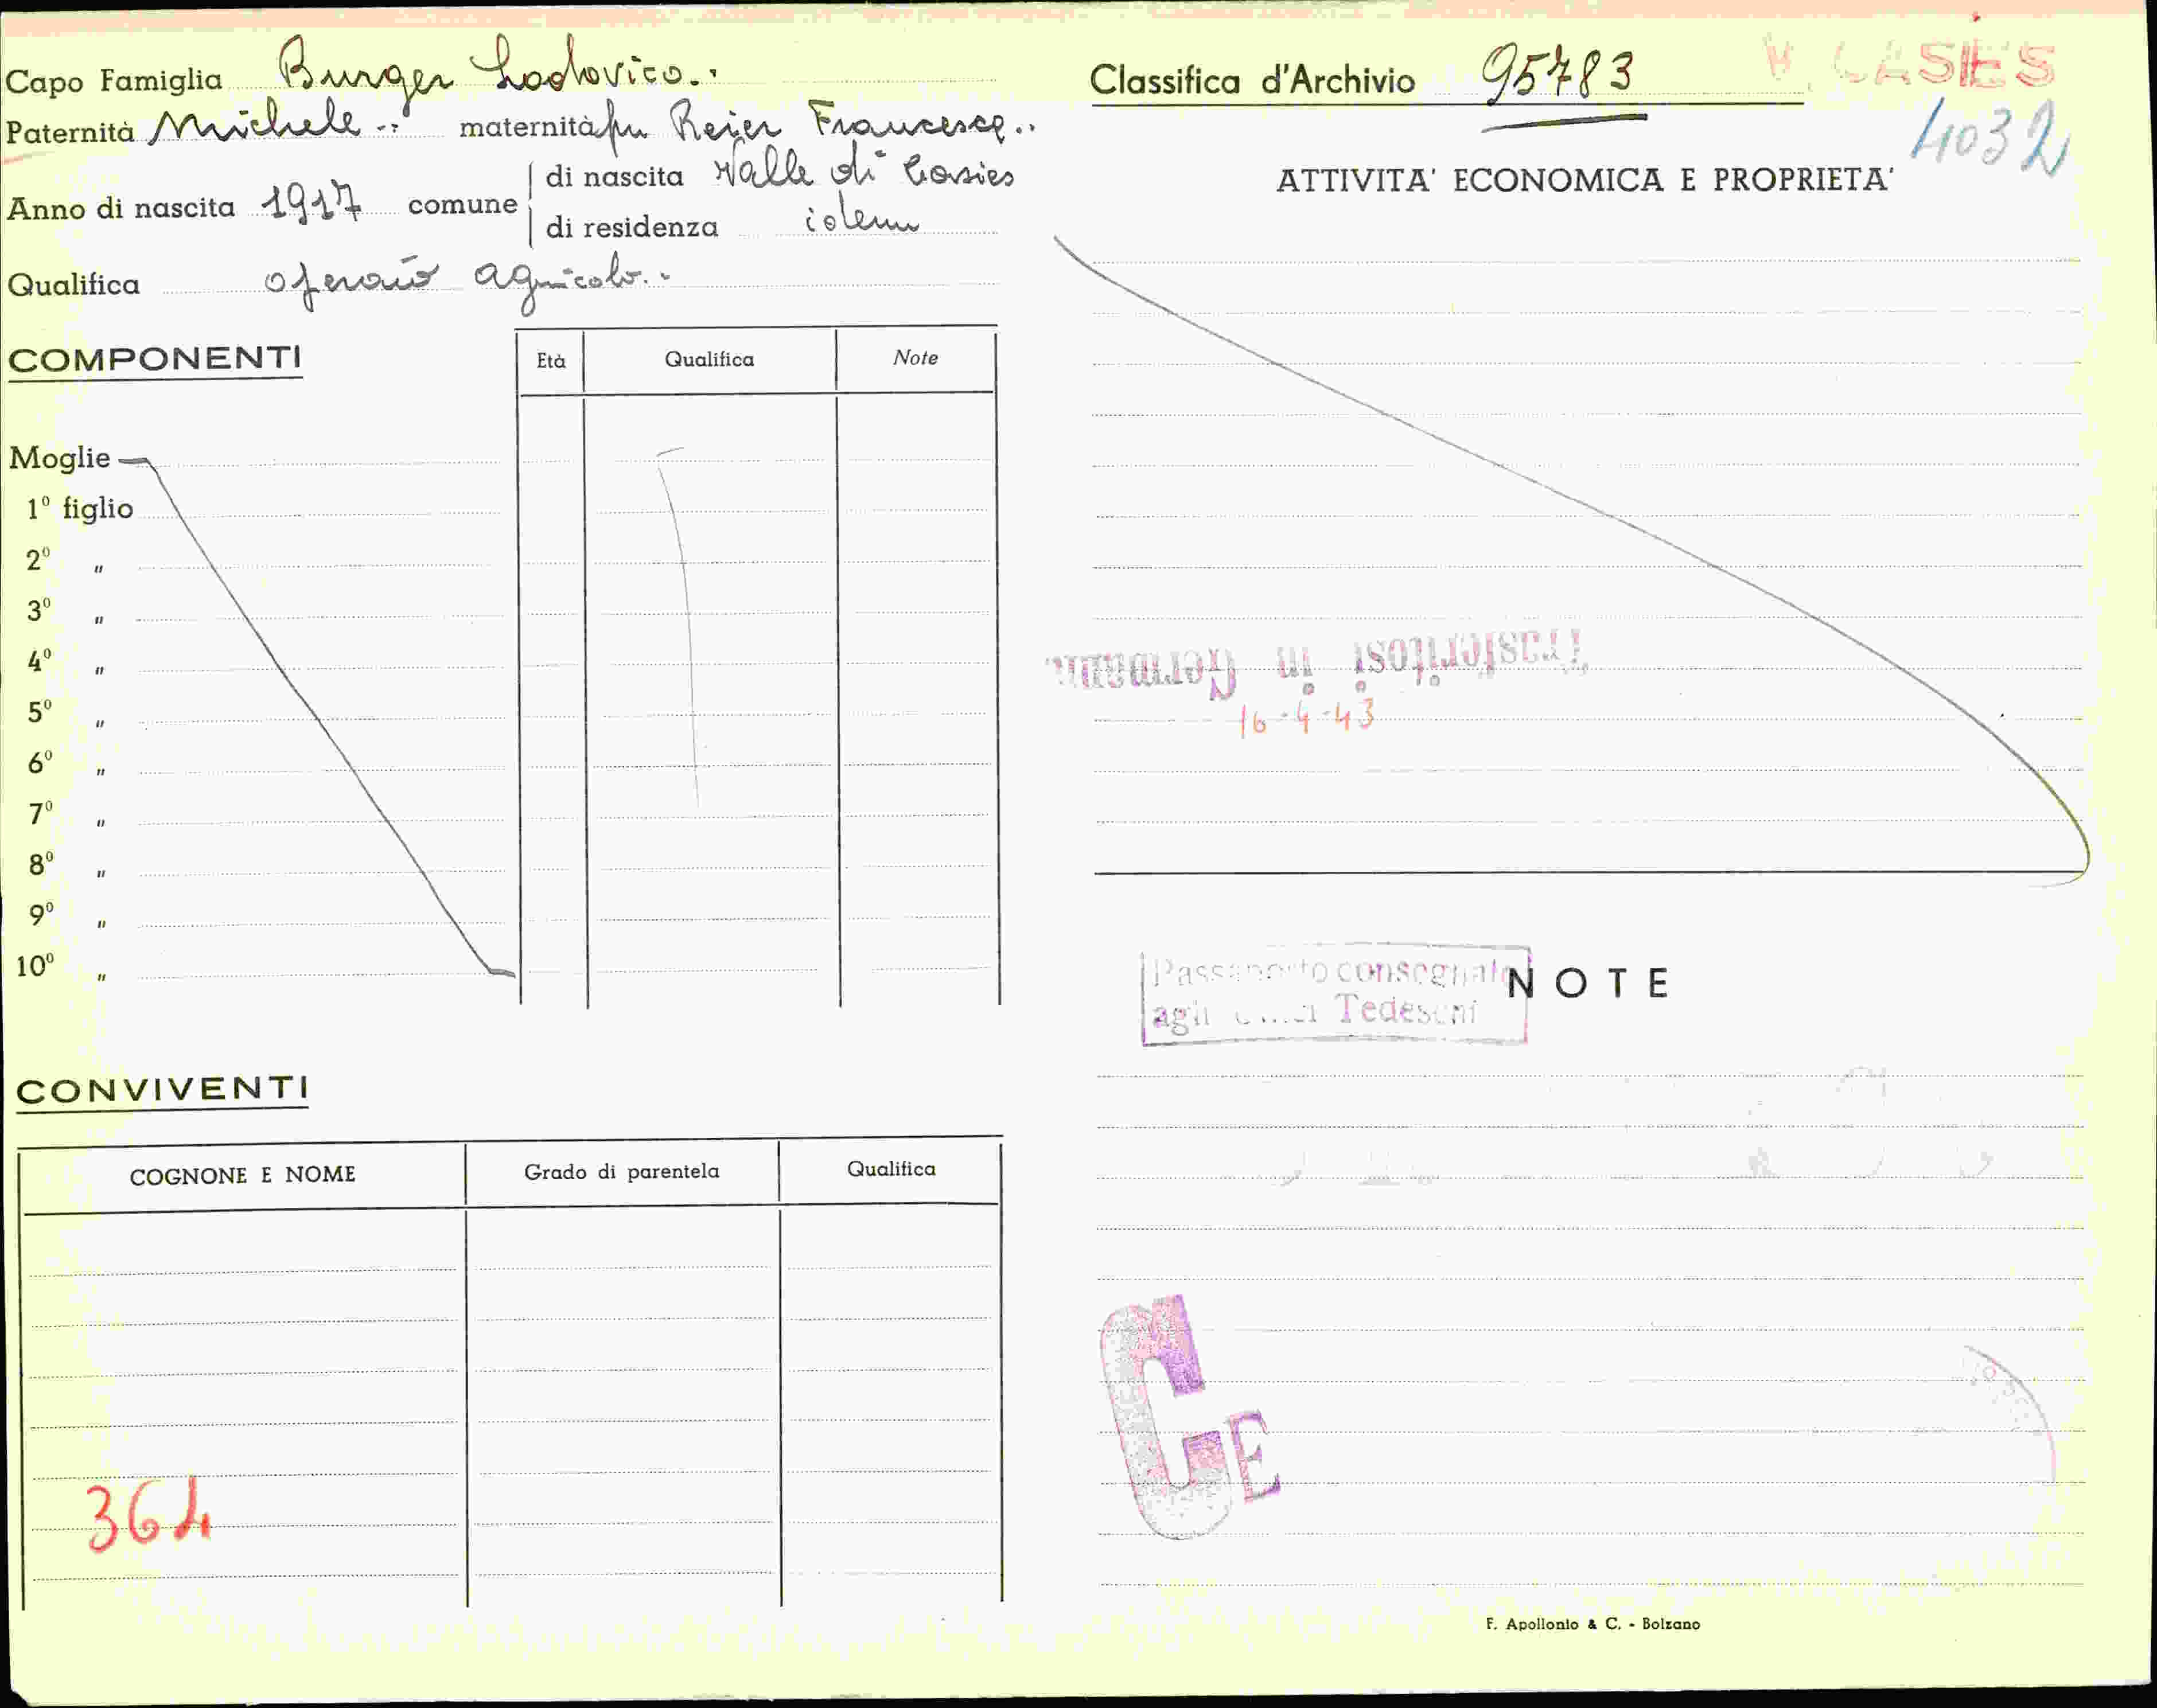 Capo Famiglia Burger Lodovico..
Paternità Michele .. maternità fu Reier Francesca..
Anno di nascita 1917 comune di nascita Valle di Casies
di residenza idem
Qualifica operaio agricolo..
COMPONENTI
Età Qualifica Note
Moglie
1º figlio
2º "
3º "
4º "
5º "
6º "
7º "
8º "
9º "
10º "
CONVIVENTI
COGNONE E NOME Grado di parentela Qualifica
364
Classifica d'Archivio 95783
V. CASIES
4032
ATTIVITA' ECONOMICA E PROPRIETA'
Trasferitosi in Germania
16-4-43
Passaporto consegnato
agli Uffici Tedeschi
NOTE
CE
F. Apollonio & C. - Bolzano